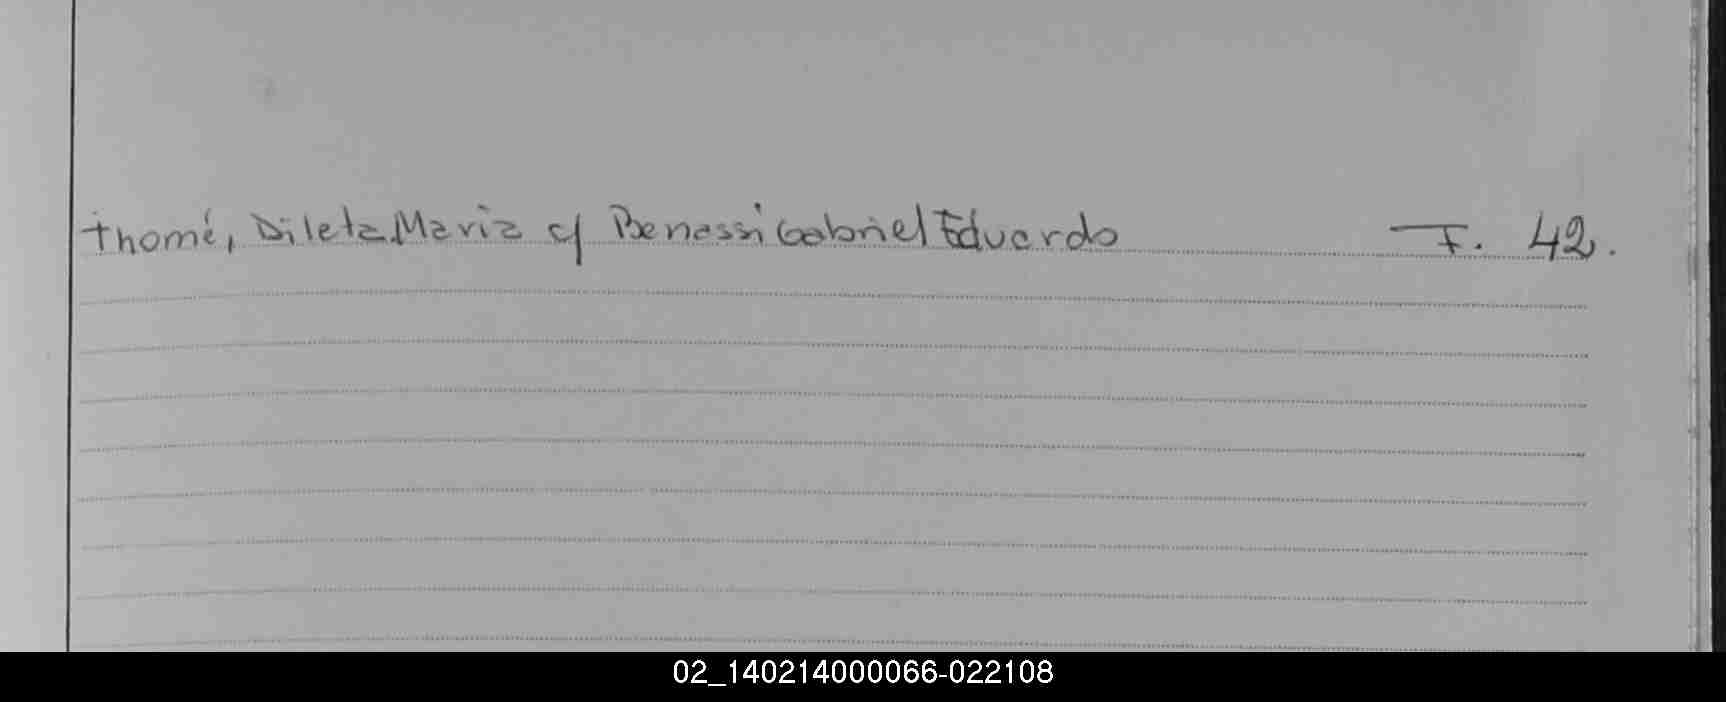 Thomé, Dileta Maria c/ Benassi Gabriel Eduardo F. 42.
02_140214000066-022108